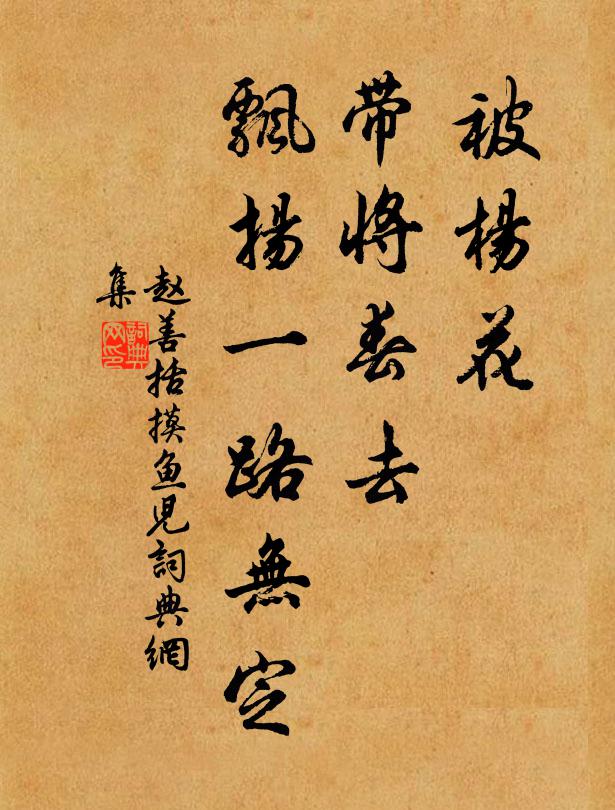 被楊花
帶將春去
飄揚一路無定
赵善括摸鱼児詞典網
集
詞典
网印